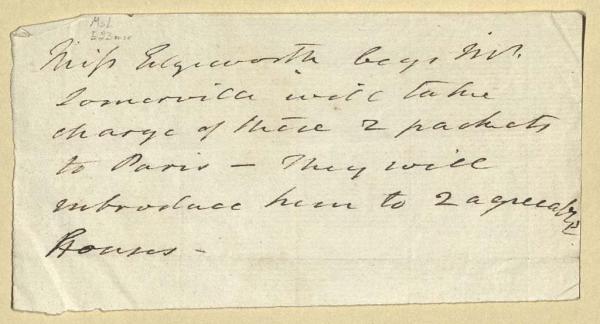 MsL
E23mo
Miss Edgeworth begs Mr.
Somerville will take
charge of these 2 packets
to Paris — They will
introduce him to 2 agreeable
Houses —